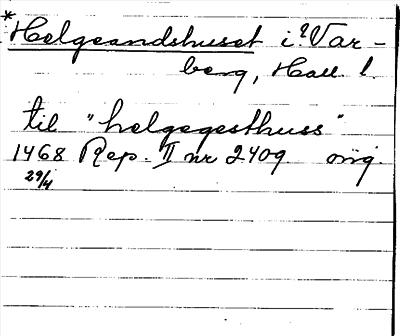 *Helgeandshuset i ?Var-
berg, Hall. l.
til "helgegesthuss"
1468 Rep. II nr 2409 orig.
29/4